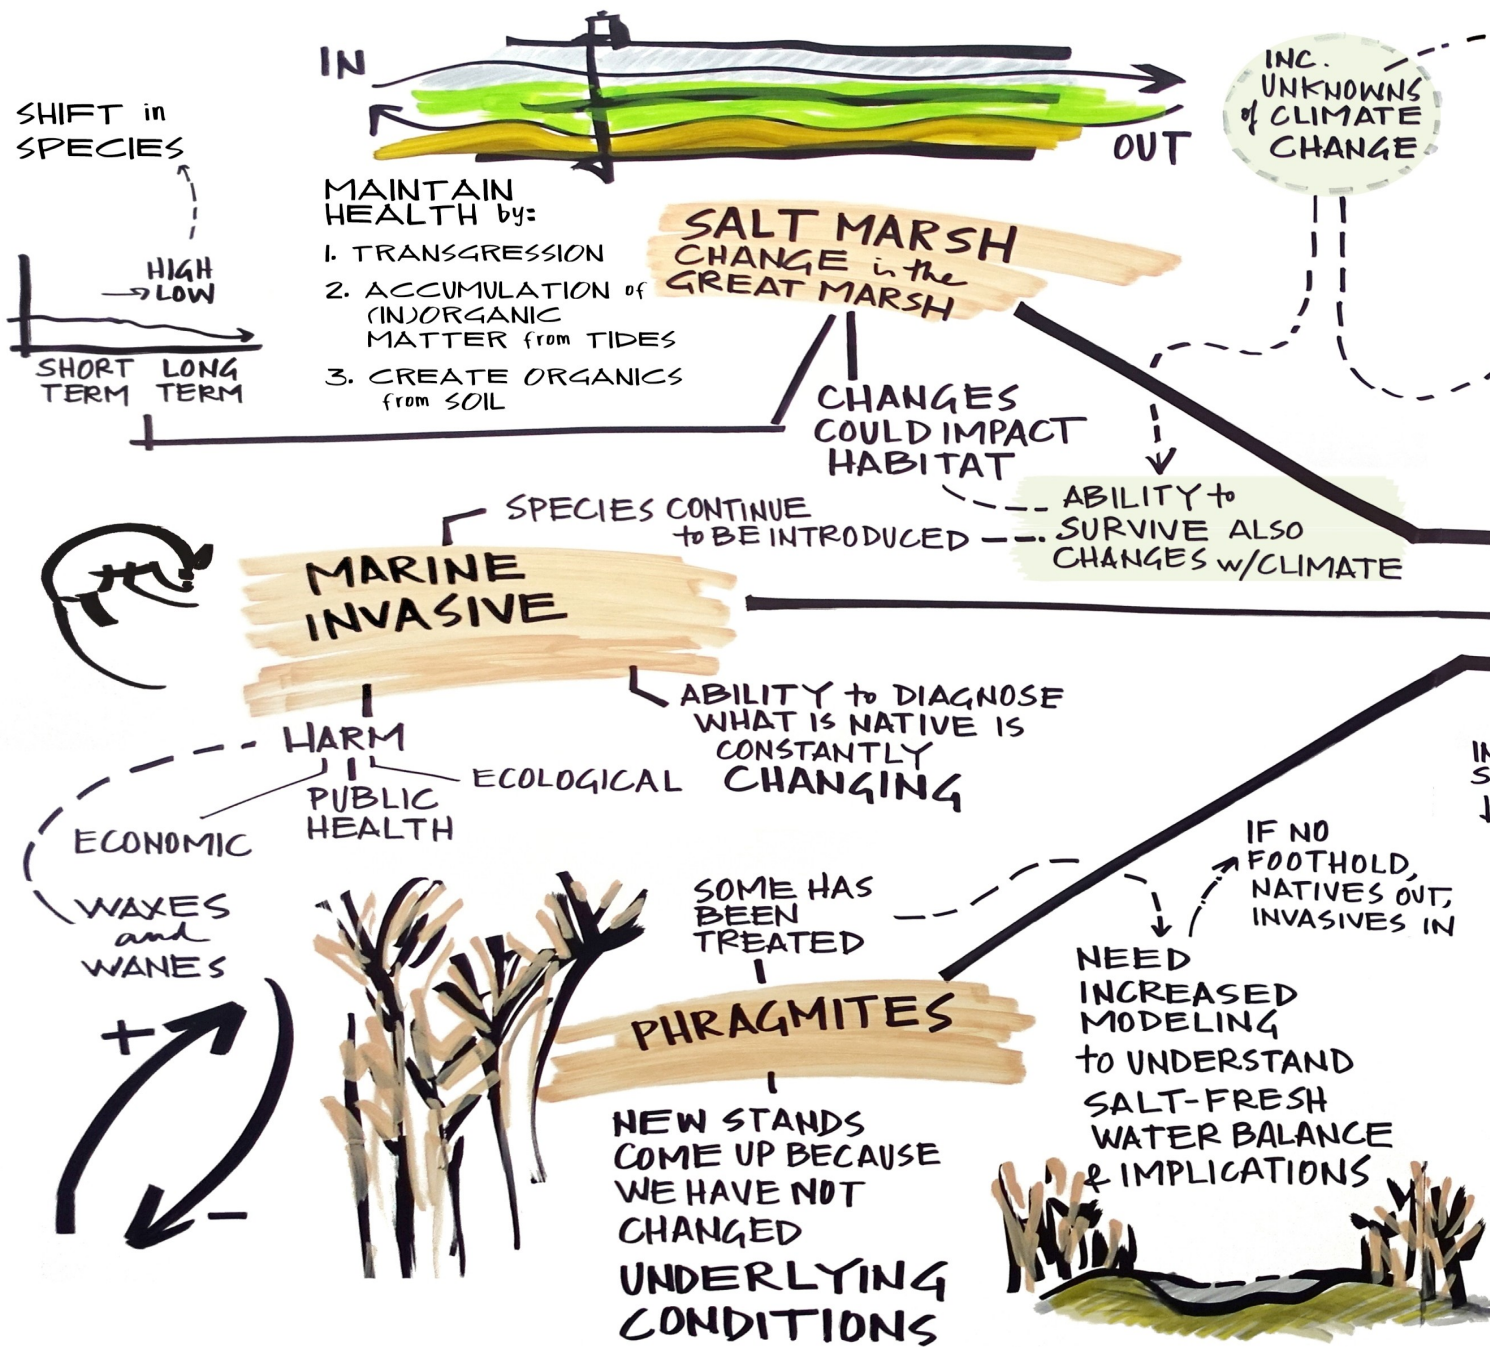 IN
OUT
SHIFT in
SPECIES
HIGH
LOW
SHORT
TERM
LONG
TERM
MAINTAIN
HEALTH by:
1. TRANSGRESSION
2. ACCUMULATION of
(IN)ORGANIC
MATTER from TIDES
3. CREATE ORGANICS
from SOIL
SALT MARSH
CHANGE in the
GREAT MARSH
INC.
UNKNOWNS
of CLIMATE
CHANGE
CHANGES
COULD IMPACT
HABITAT
SPECIES CONTINUE
to BE INTRODUCED
ABILITY to
SURVIVE ALSO
CHANGES w/CLIMATE
MARINE
INVASIVE
ABILITY to DIAGNOSE
WHAT IS NATIVE IS
CONSTANTLY
CHANGING
HARM
ECONOMIC
PUBLIC
HEALTH
ECOLOGICAL
WAXES
and
WANES
+
-
SOME HAS
BEEN
TREATED
PHRAGMITES
NEW STANDS
COME UP BECAUSE
WE HAVE NOT
CHANGED
UNDERLYING
CONDITIONS
IF NO
FOOTHOLD,
NATIVES OUT,
INVASIVES IN
NEED
INCREASED
MODELING
to UNDERSTAND
SALT-FRESH
WATER BALANCE
& IMPLICATIONS